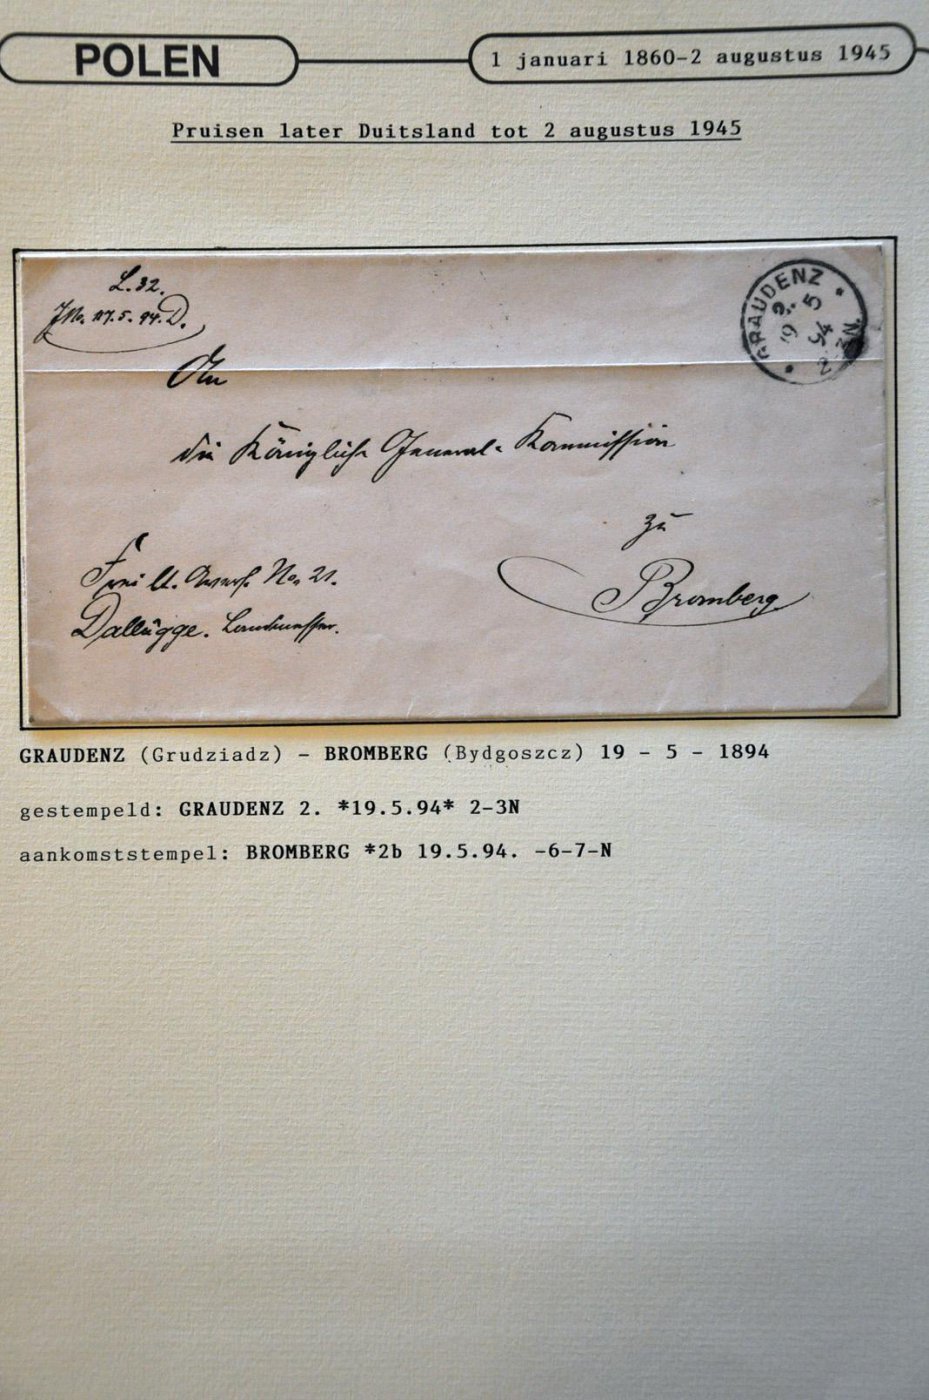 POLEN
1 januari 1860-2 augustus 1945
Pruisen later Duitsland tot 2 augustus 1945
L. 32.
JN. 17.5.94. D.
GRAUDENZ
19 5 94
2
An
die Königliche General-Kommission
zu
Bromberg
Frei lt. Avers. No. 21.
Dallügge. Landmesser.
GRAUDENZ (Grudziadz) - BROMBERG (Bydgoszcz) 19 - 5 - 1894
gestempeld: GRAUDENZ 2. *19.5.94* 2-3N
aankomststempel: BROMBERG *2b 19.5.94. -6-7-N